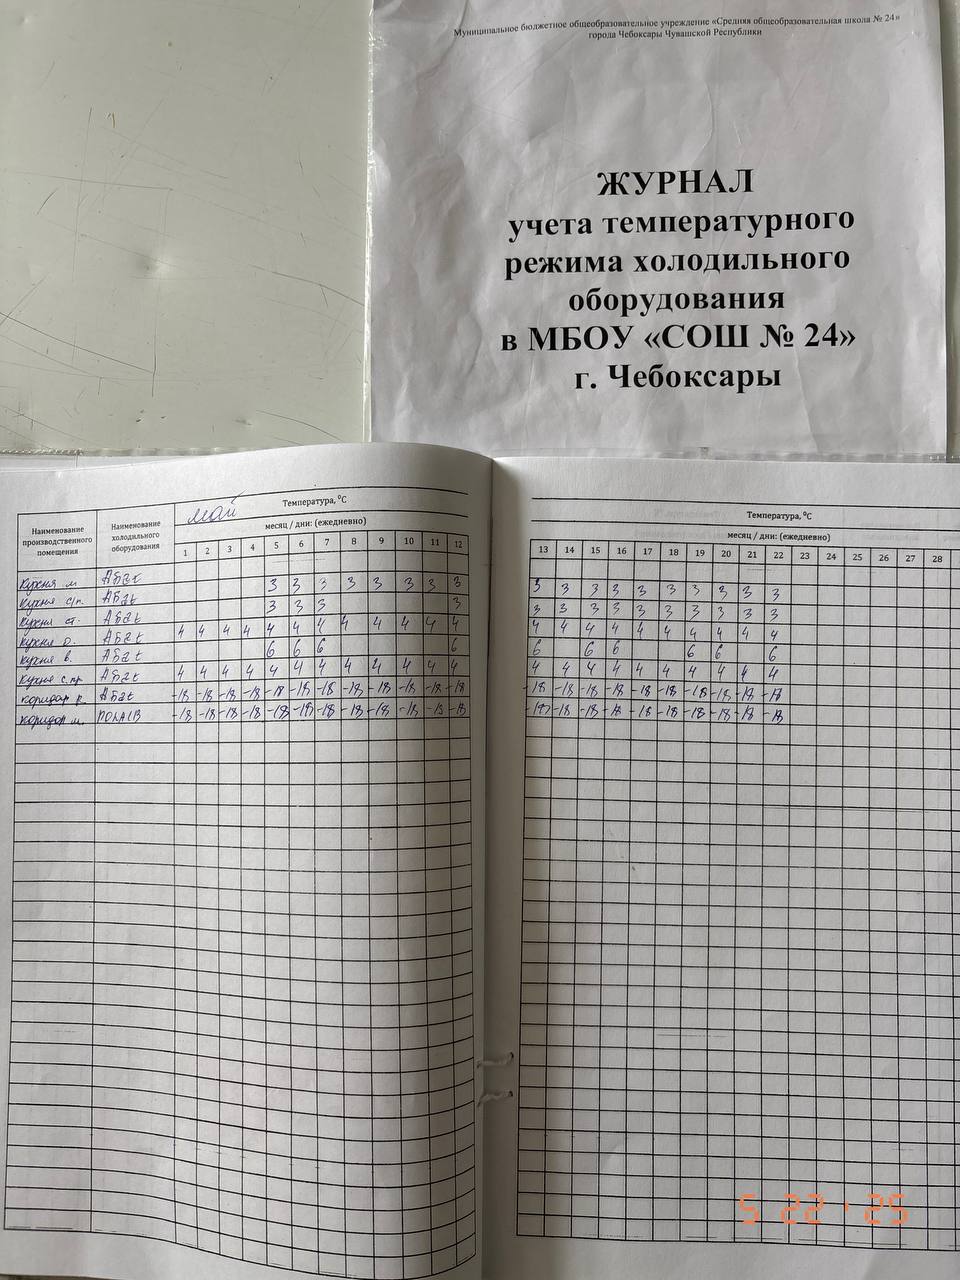 Муниципальное бюджетное общеобразовательное учреждение «Средняя общеобразовательная школа № 24»
города Чебоксары Чувашской Республики
ЖУРНАЛ
учета температурного
режима холодильного
оборудования
в МБОУ «СОШ № 24»
г. Чебоксары
Наименование производственного помещения
Наименование холодильного оборудования
Температура, ⁰С
май
месяц / дни: (ежедневно)
1 2 3 4 5 6 7 8 9 10 11 12
Кухня м АБat 3 3 3 3 3 3 3 3
Кухня с/п. АБat 3 3 3 3
Кухня АБat 4 4 4 4 4 4 4 4 4 4 4 4
Кухня о. АБat 6 6 6 6
Кухня в. АБat
Кухня с.пр АБat 4 4 4 4 4 4 4 4 4 4 4 4
коридор к АБat -18 -18 -18 -18 -18 -18 -18 -18 -18 -18 -18 -18
коридор м. -18 -18 -18 -18 -18 -18 -18 -18 -18 -18 -18 -18
Температура, ⁰С
месяц / дни: (ежедневно)
13 14 15 16 17 18 19 20 21 22 23 24 25 26 27 28
3 3 3 3 3 3 3 3 3 3
3 3 3 3 3 3 3 3 3 3
4 4 4 4 4 4 4 4 4 4
6 6 6 6 6 6
4 4 4 4 4 4 4 4 4 4
-18 -18 -18 -18 -18 -18 -18 -18 -18 -18
-18 -18 -18 -18 -18 -18 -18 -18 -18 -18
5 22 '25